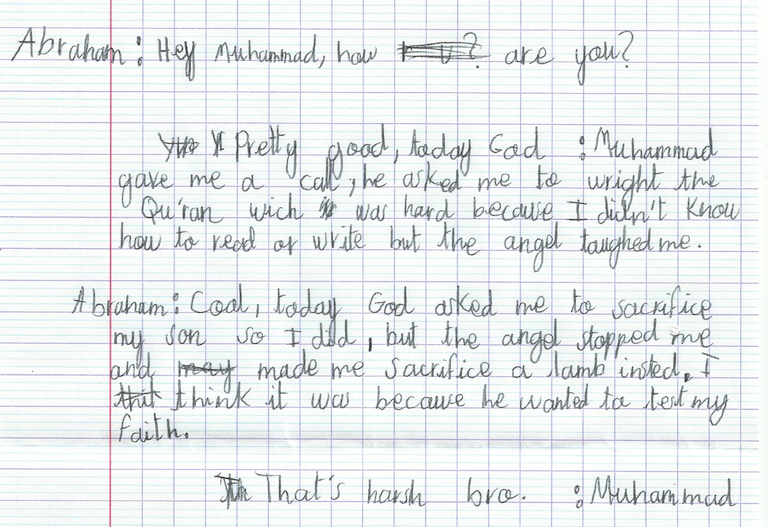 Abraham: Hey Muhammad, how are you?
Pretty good, today God :Muhammad
gave me a call, he asked me to wright the
Qu'ran wich was hard because I didn't know
how to read or write but the angel taughed me.
Abraham: Cool, today God asked me to sacrifice
my son so I did, but the angel stopped me
and made me sacrifice a lamb insted. I
think it was because he wanted to test my
faith.
That's harsh bro. :Muhammad